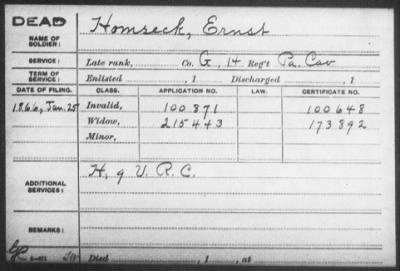 DEAD
NAME OF SOLDIER: Homseck, Ernst
SERVICE: Late rank, Co. G, 14 Reg't Pa. Cav
TERM OF SERVICE: Enlisted , 1 Discharged , 1
DATE OF FILING. CLASS. APPLICATION NO. LAW. CERTIFICATE NO.
1866, Jan. 25 Invalid, 100871 100648
Widow, 215443 173892
Minor,
ADDITIONAL SERVICES: H, 9 V. R. C.
REMARKS:
Died , 1 , at